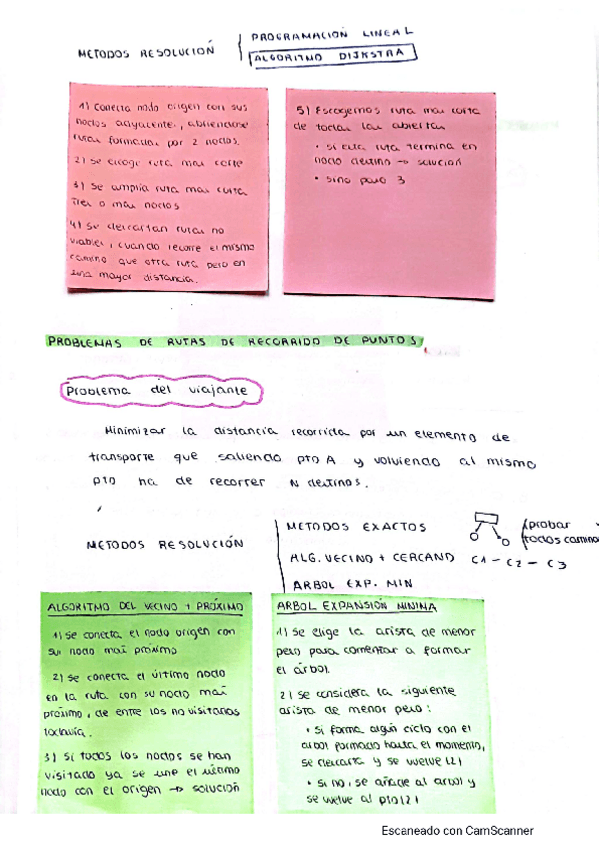 METODOS RESOLUCIÓN
PROGRAMACIÓN LINEAL
ALGORITMO DIJKSTRA
1) Conecta nodo origen con sus
nodos adyacentes, abriendose
rutas formadas por 2 nodos.
2) Se escoge ruta mas corte
3) Se amplia ruta mas corta
tres o mas nodos
4) Se descartan rutas no
viables, cuando recorre el mismo
camino que otra ruta pero en
una mayor distancia.
5) Escogemos ruta mas corta
de todas las abiertas
• si esta ruta termina en
nodo destino → solucion
• sino paso 3
PROBLEMAS DE RUTAS DE RECORRIDO DE PUNTOS
Problema del viajante
Minimizar la distancia recorrida por un elemento de
transporte que saliendo pto A y volviendo al mismo
pto ha de recorrer N destinos.
METODOS RESOLUCIÓN
METODOS EXACTOS
ALG. VECINO + CERCANO
ARBOL EXP. MIN
(probar
todos camino
C1 - C2 - C3
ALGORITMO DEL VECINO + PRÓXIMO
1) Se conecta el nodo origen con
su nodo mas próximo
2) Se conecta el último nodo
en la ruta con su nodo mas
próximo, de entre los no visitados
todavía.
3) Si todos los nodos se han
visitado ya se une el ultimo
nodo con el origen → solución
ARBOL EXPANSIÓN MINIMA
1) Se elige la arista de menor
peso para comenzar a formar
el árbol.
2) Se considera la siguiente
arista de menor peso:
• si forma algún ciclo con el
arbol formado hasta el momento,
se descarta y se vuelve (2)
• si no, se añade al arbol y
se vuelve al pto(2)
Escaneado con CamScanner